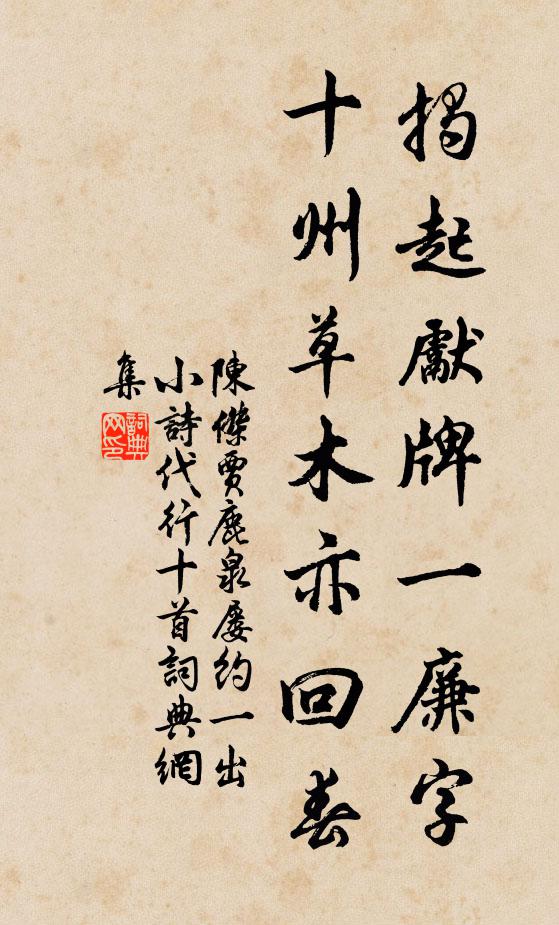 揭起獻牌一廉字
十州草木亦回春
陳傑賈鹿泉屡約一出
小詩代行十首詞典網
集
詞典
网印